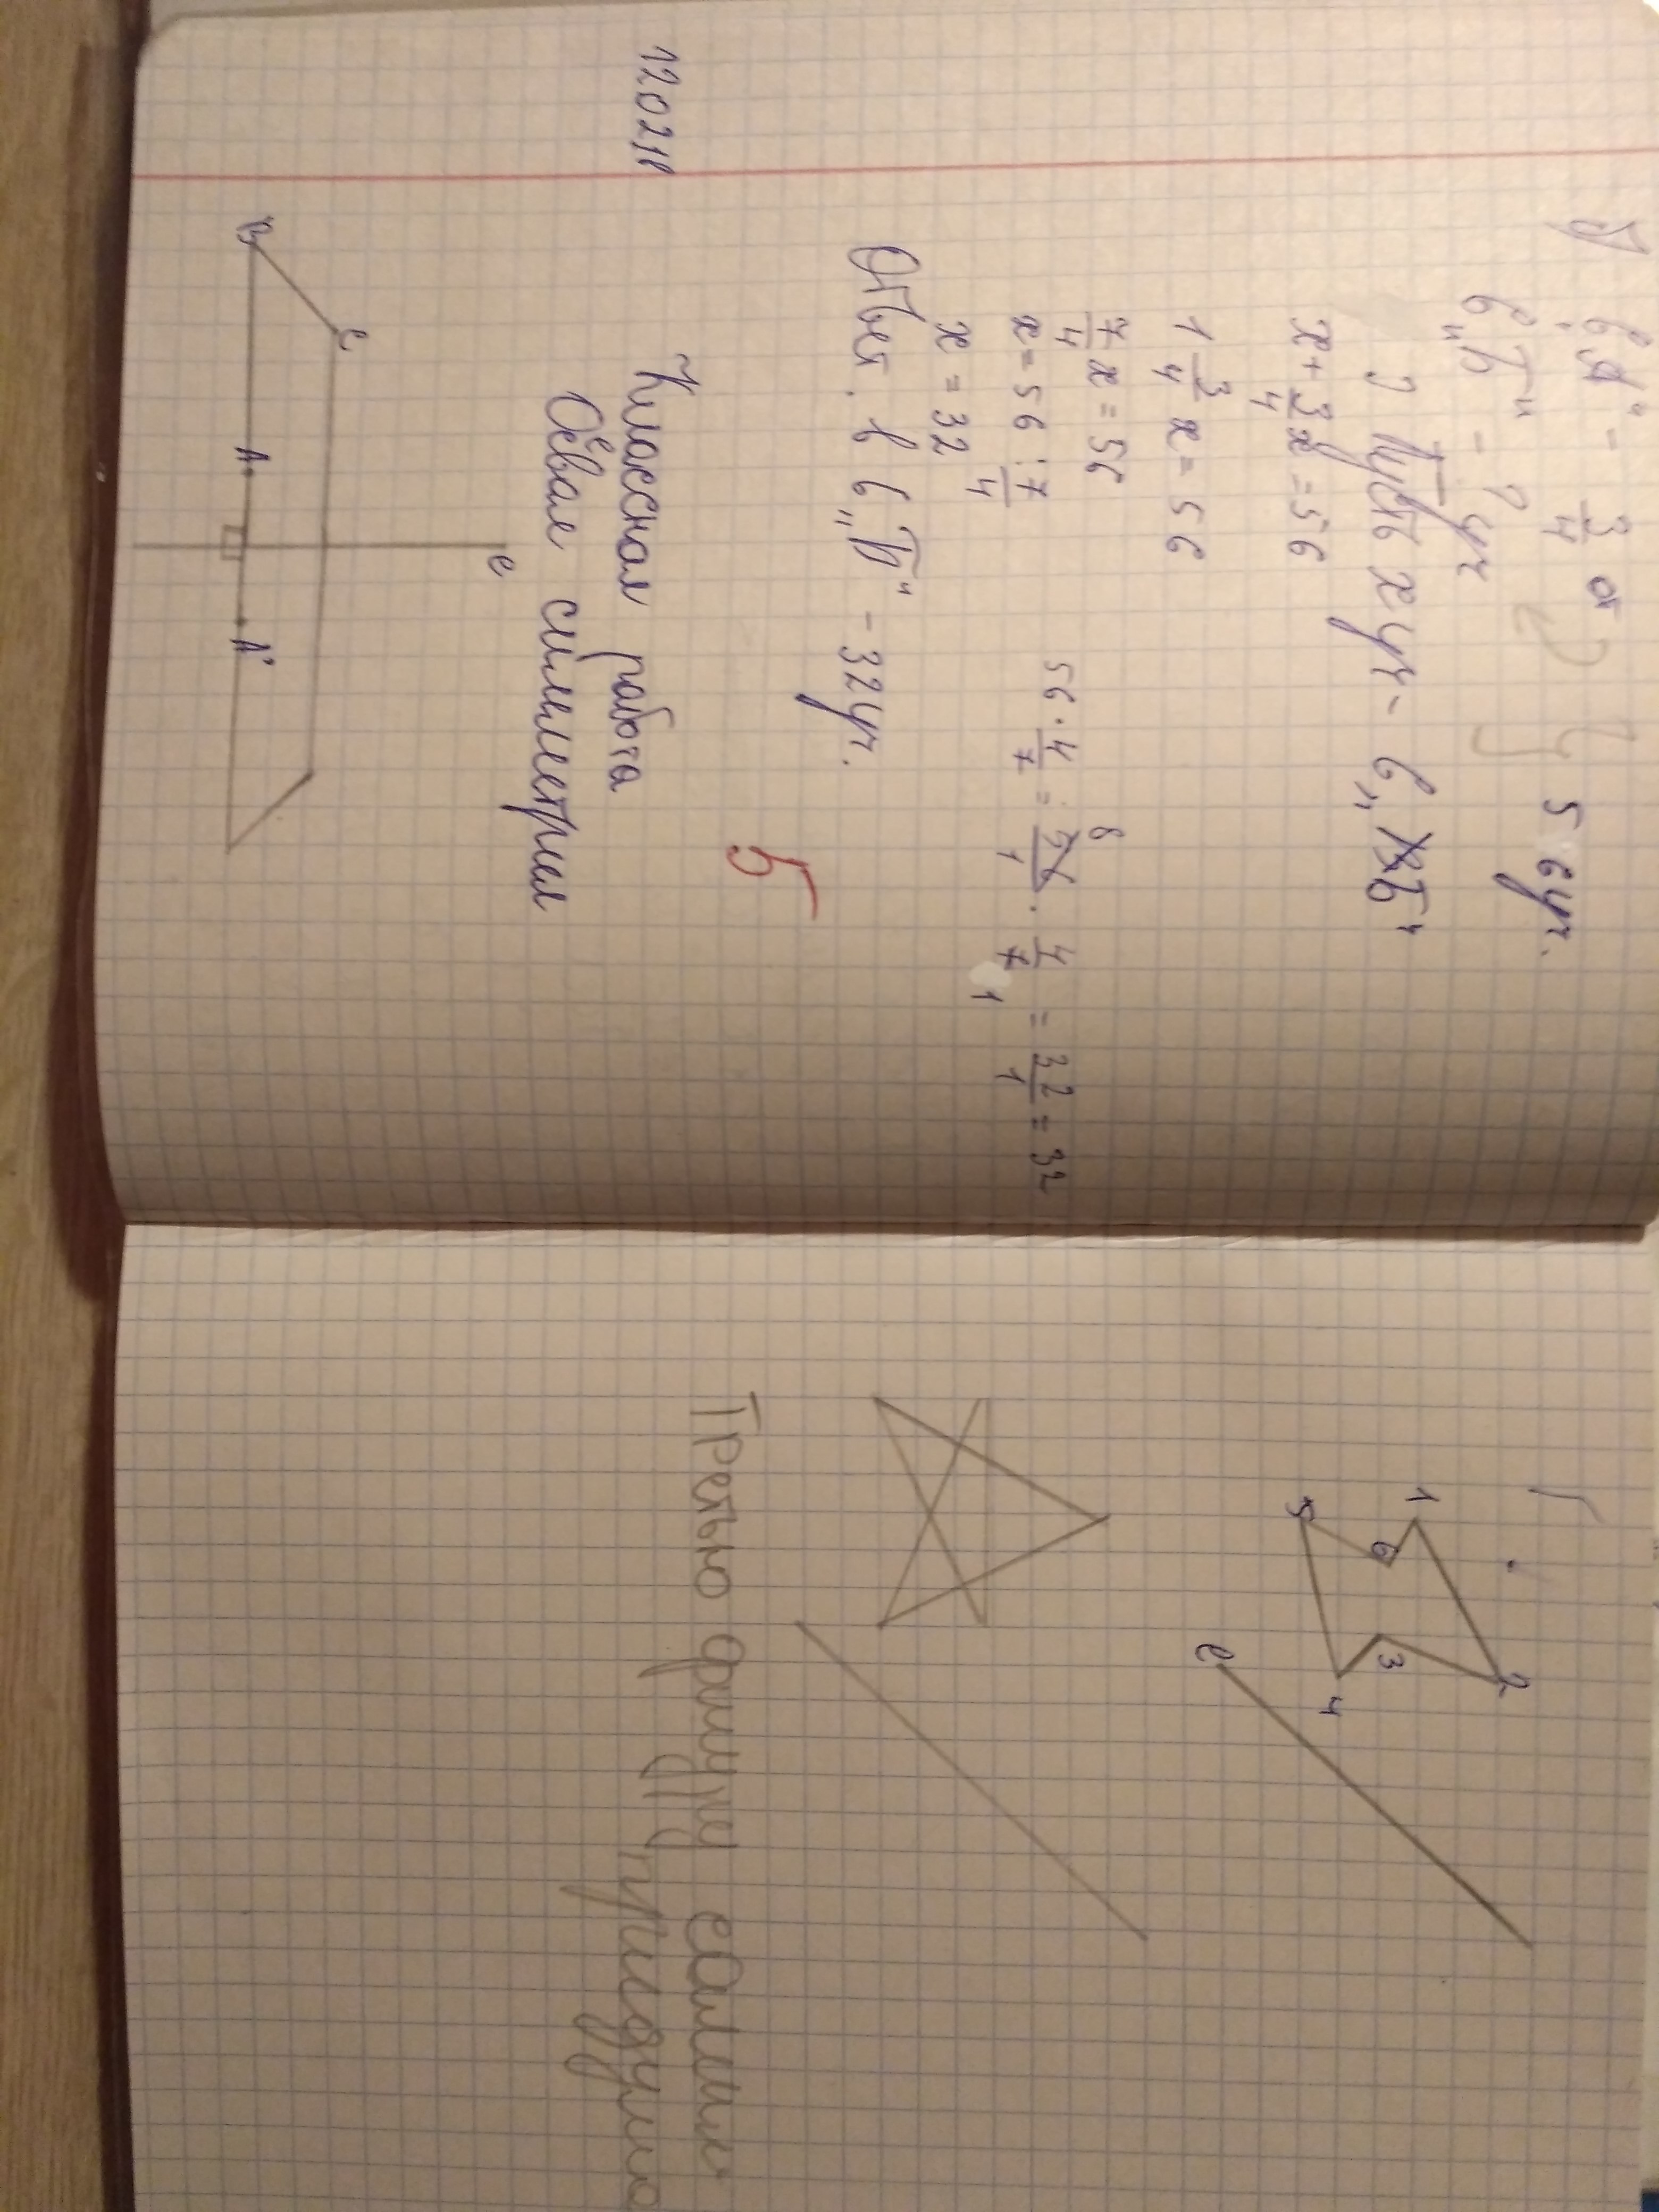 6 „А“ - 3/4 от
6 „Б“ - ? уч
56 уч.
] Пусть x уч - 6 „Б“
x + 3/4 x = 56
1 3/4 x = 56
7/4 x = 56
x = 56 : 7/4
56 · 4/7 = 56/1 · 4/7 = 32/1 = 32
8
1
x = 32
Ответ. в 6 „Б“ - 32 уч.
5
12.02.18
Классная работа
Осевая симметрия
B C A A' l
1 2 3 4 5 6
l
Третью фигуру сами
придумываем